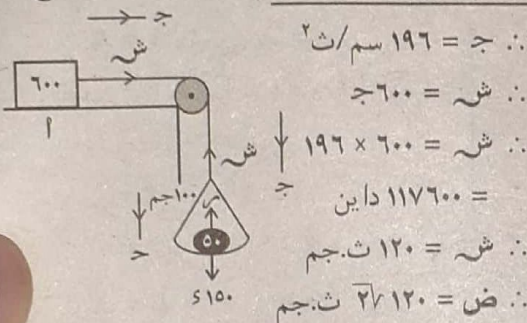 ∴ جـ = ١٩٦ سم/ث٢
∴ ش = ٦٠٠جـ
∴ ش = ٦٠٠ × ١٩٦
= ١١٧٦٠٠ داين
∴ ش = ١٢٠ ث.جم
∴ ض = ١٢٠ √٢ ث.جم
جـ
ش
٦٠٠
أ
ش
جـ
١٠٠جم
ر
٥٠
١٥٠ ء